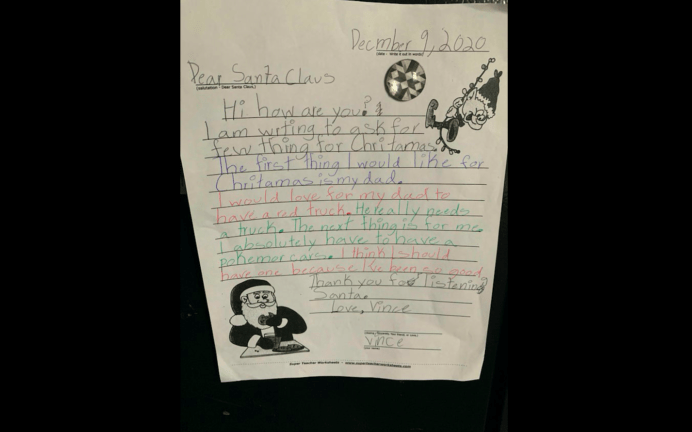 Decmber 9, 2020
Dear Santa Claus
(salutation - Dear Santa Claus,)
Hi how are you?
I am writing to ask for
few thing for Chritamas.
The first thing I would like for
Chritamas is my dad.
I would love for my dad to
have a red truck. He really needs
a truck. The next thing is for me.
I absolutely have to have a
pokemor cars. I think I should
have one because I've been so good.
Thank you for listening
Santa.
Love, Vince
Vince
Super Teacher Worksheets - www.superteacherworksheets.com